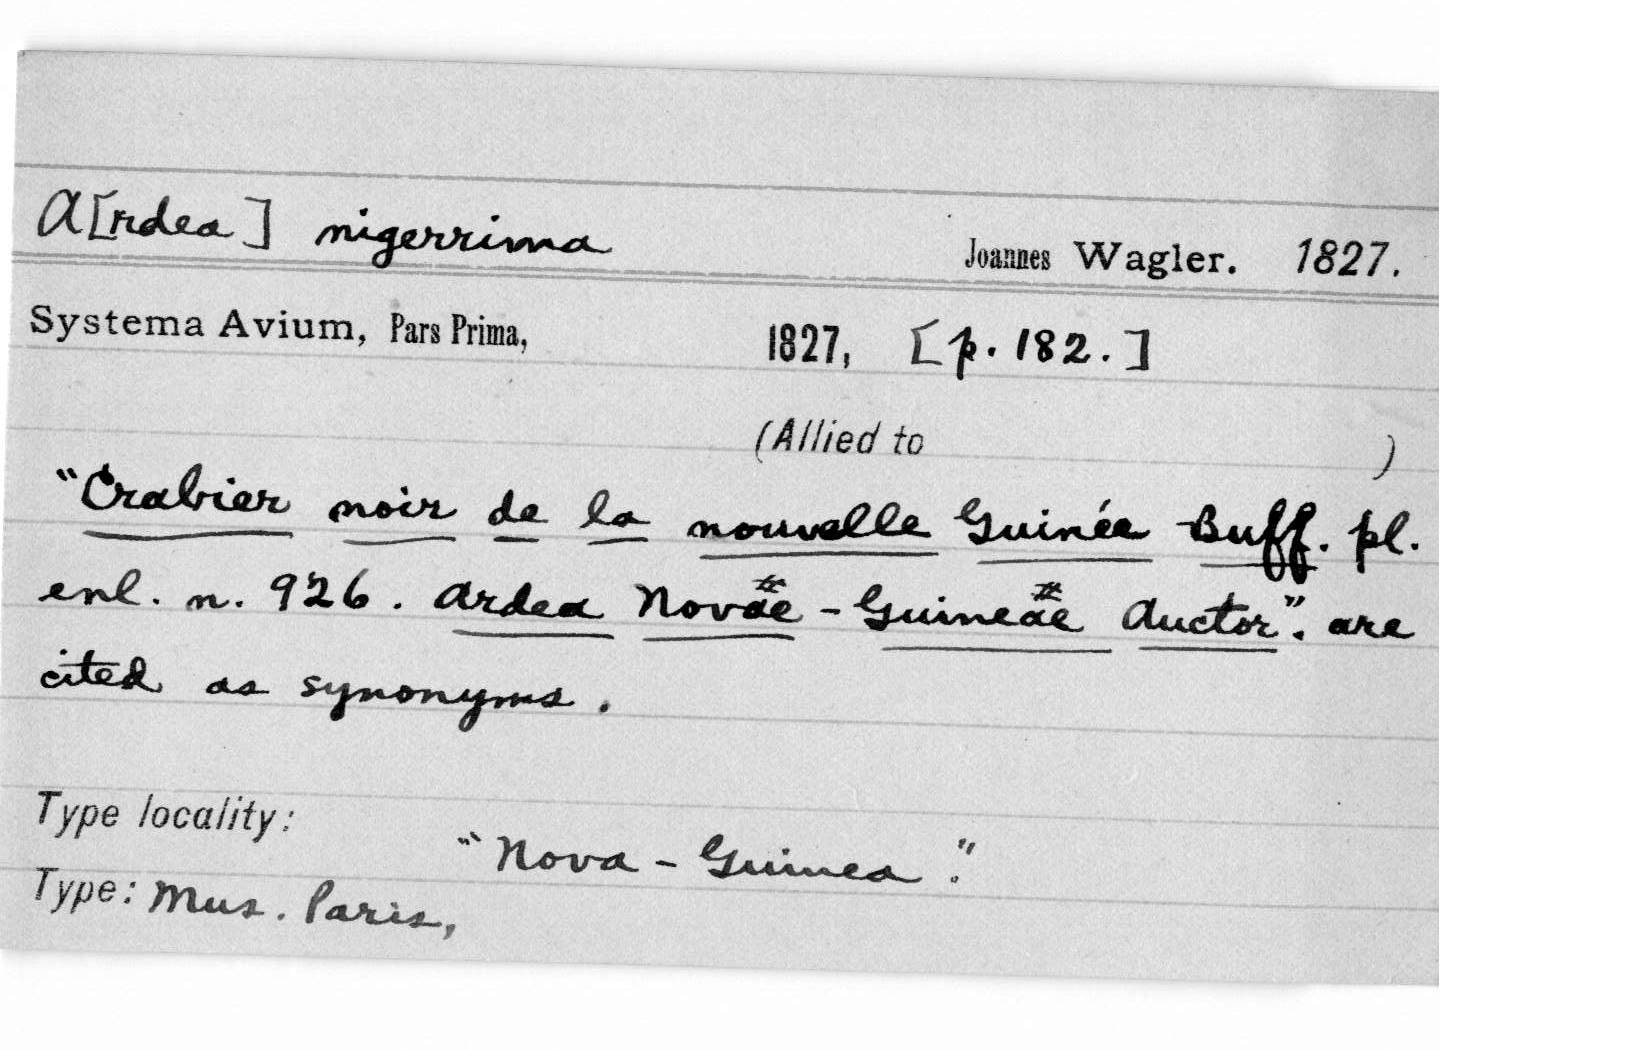 A[rdea] nigerrima Joannes Wagler. 1827.
Systema Avium, Pars Prima, 1827, [p. 182.]
(Allied to )
"Crabier noir de la nouvelle Guinée Buff. pl.
enl. n. 926. Ardea Novae - Guineae Auctor". are
cited as synonyms.
Type locality:
"Nova - Guinea".
Type: Mus. Paris,